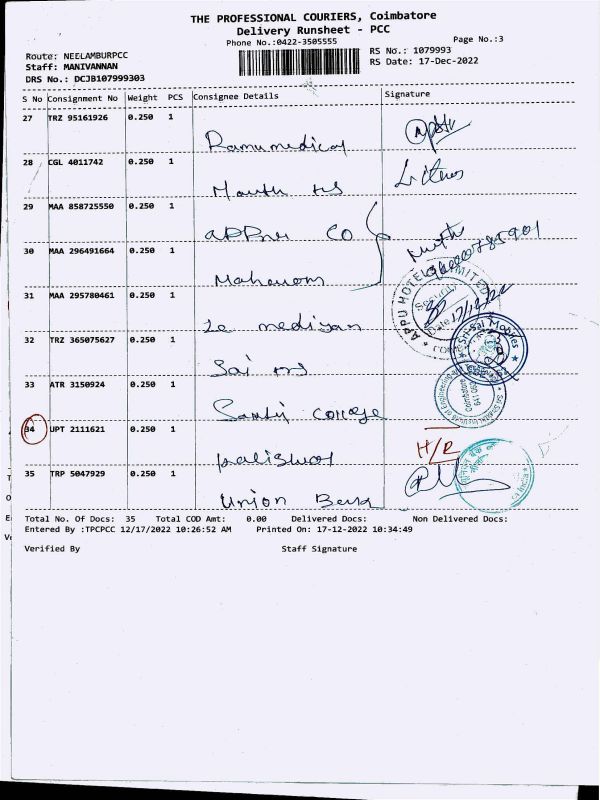 THE PROFESSIONAL COURIERS, Coimbatore
Delivery Runsheet - PCC
Phone No.:0422-3505555
Page No.:3
Route: NEELAMBURPCC
RS No.: 1079993
Staff: MANIVANNAN
RS Date: 17-Dec-2022
DRS No.: DCJB107999303
S No Consignment No Weight PCS Consignee Details Signature
27 TRZ 95161926 0.250 1
Ramu medical
28 CGL 4011742 0.250 1
29 MAA 858725550 0.250 1
CO
30 MAA 296491664 0.250 1
31 MAA 295780461 0.250 1
32 TRZ 365075627 0.250 1
Sai
33 ATR 3150924 0.250 1
College
34 UPT 2111621 0.250 1
H/R
35 TRP 5047929 0.250 1
Union Bank
APPU HOTELS LIMITED
Security
Date
Sri Sai Mobiles
Total No. Of Docs: 35 Total COD Amt: 0.00 Delivered Docs: Non Delivered Docs:
Entered By :TPCPCC 12/17/2022 10:26:52 AM Printed On: 17-12-2022 10:34:49
Verified By Staff Signature